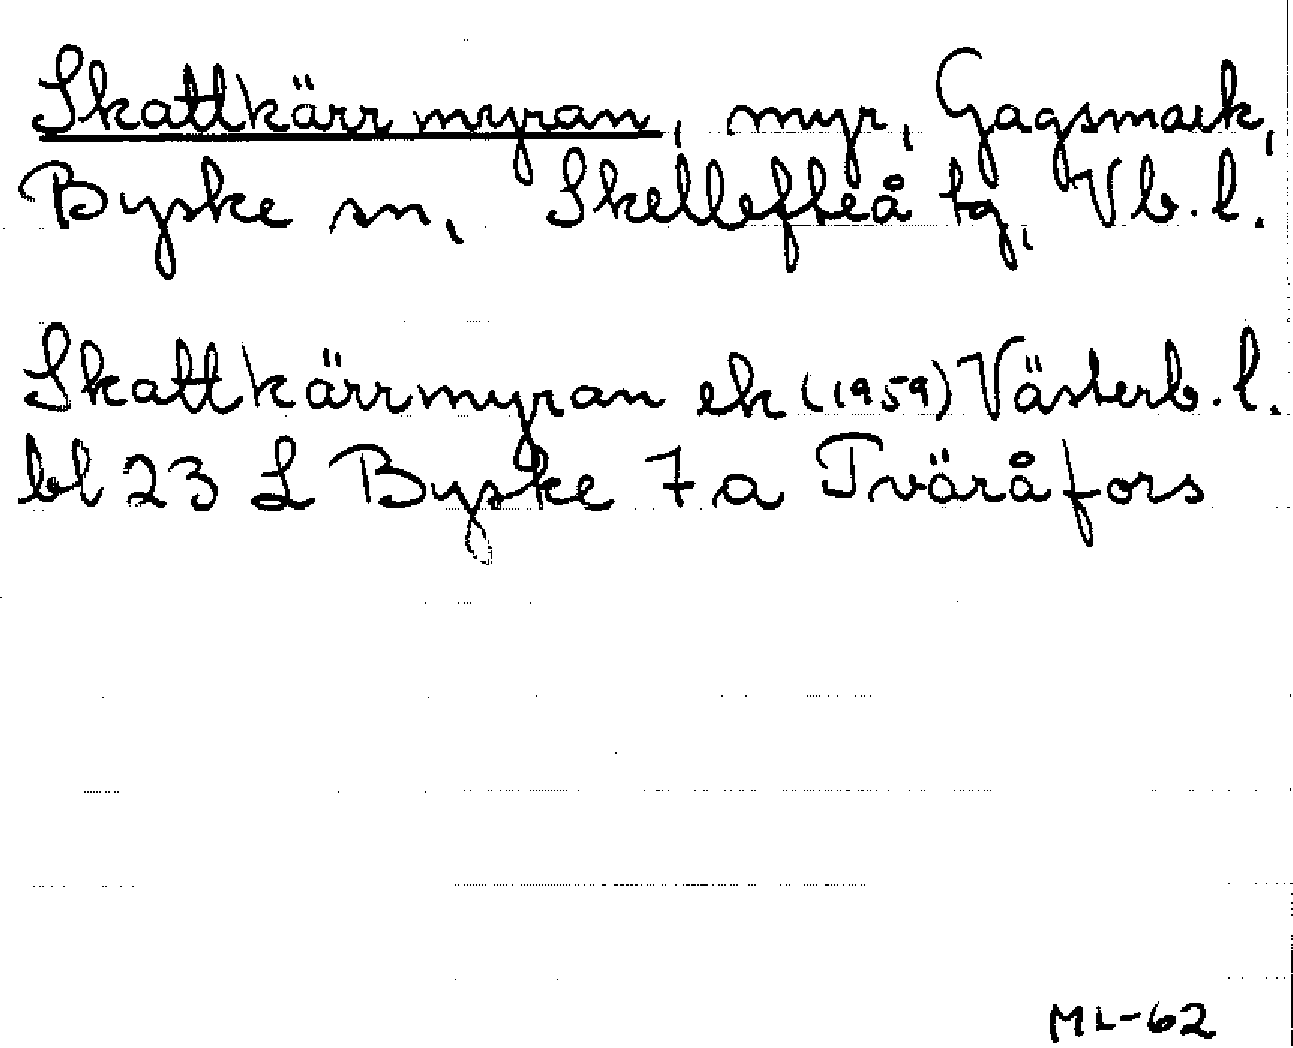 Skattkärrmyran, myr, Gagsmark,
Byske sn, Skellefteå tg, Vb.l.
Skattkärrmyran ek (1959) Västerb.l.
bl 23 L Byske 7 a Tväråfors
ML-62